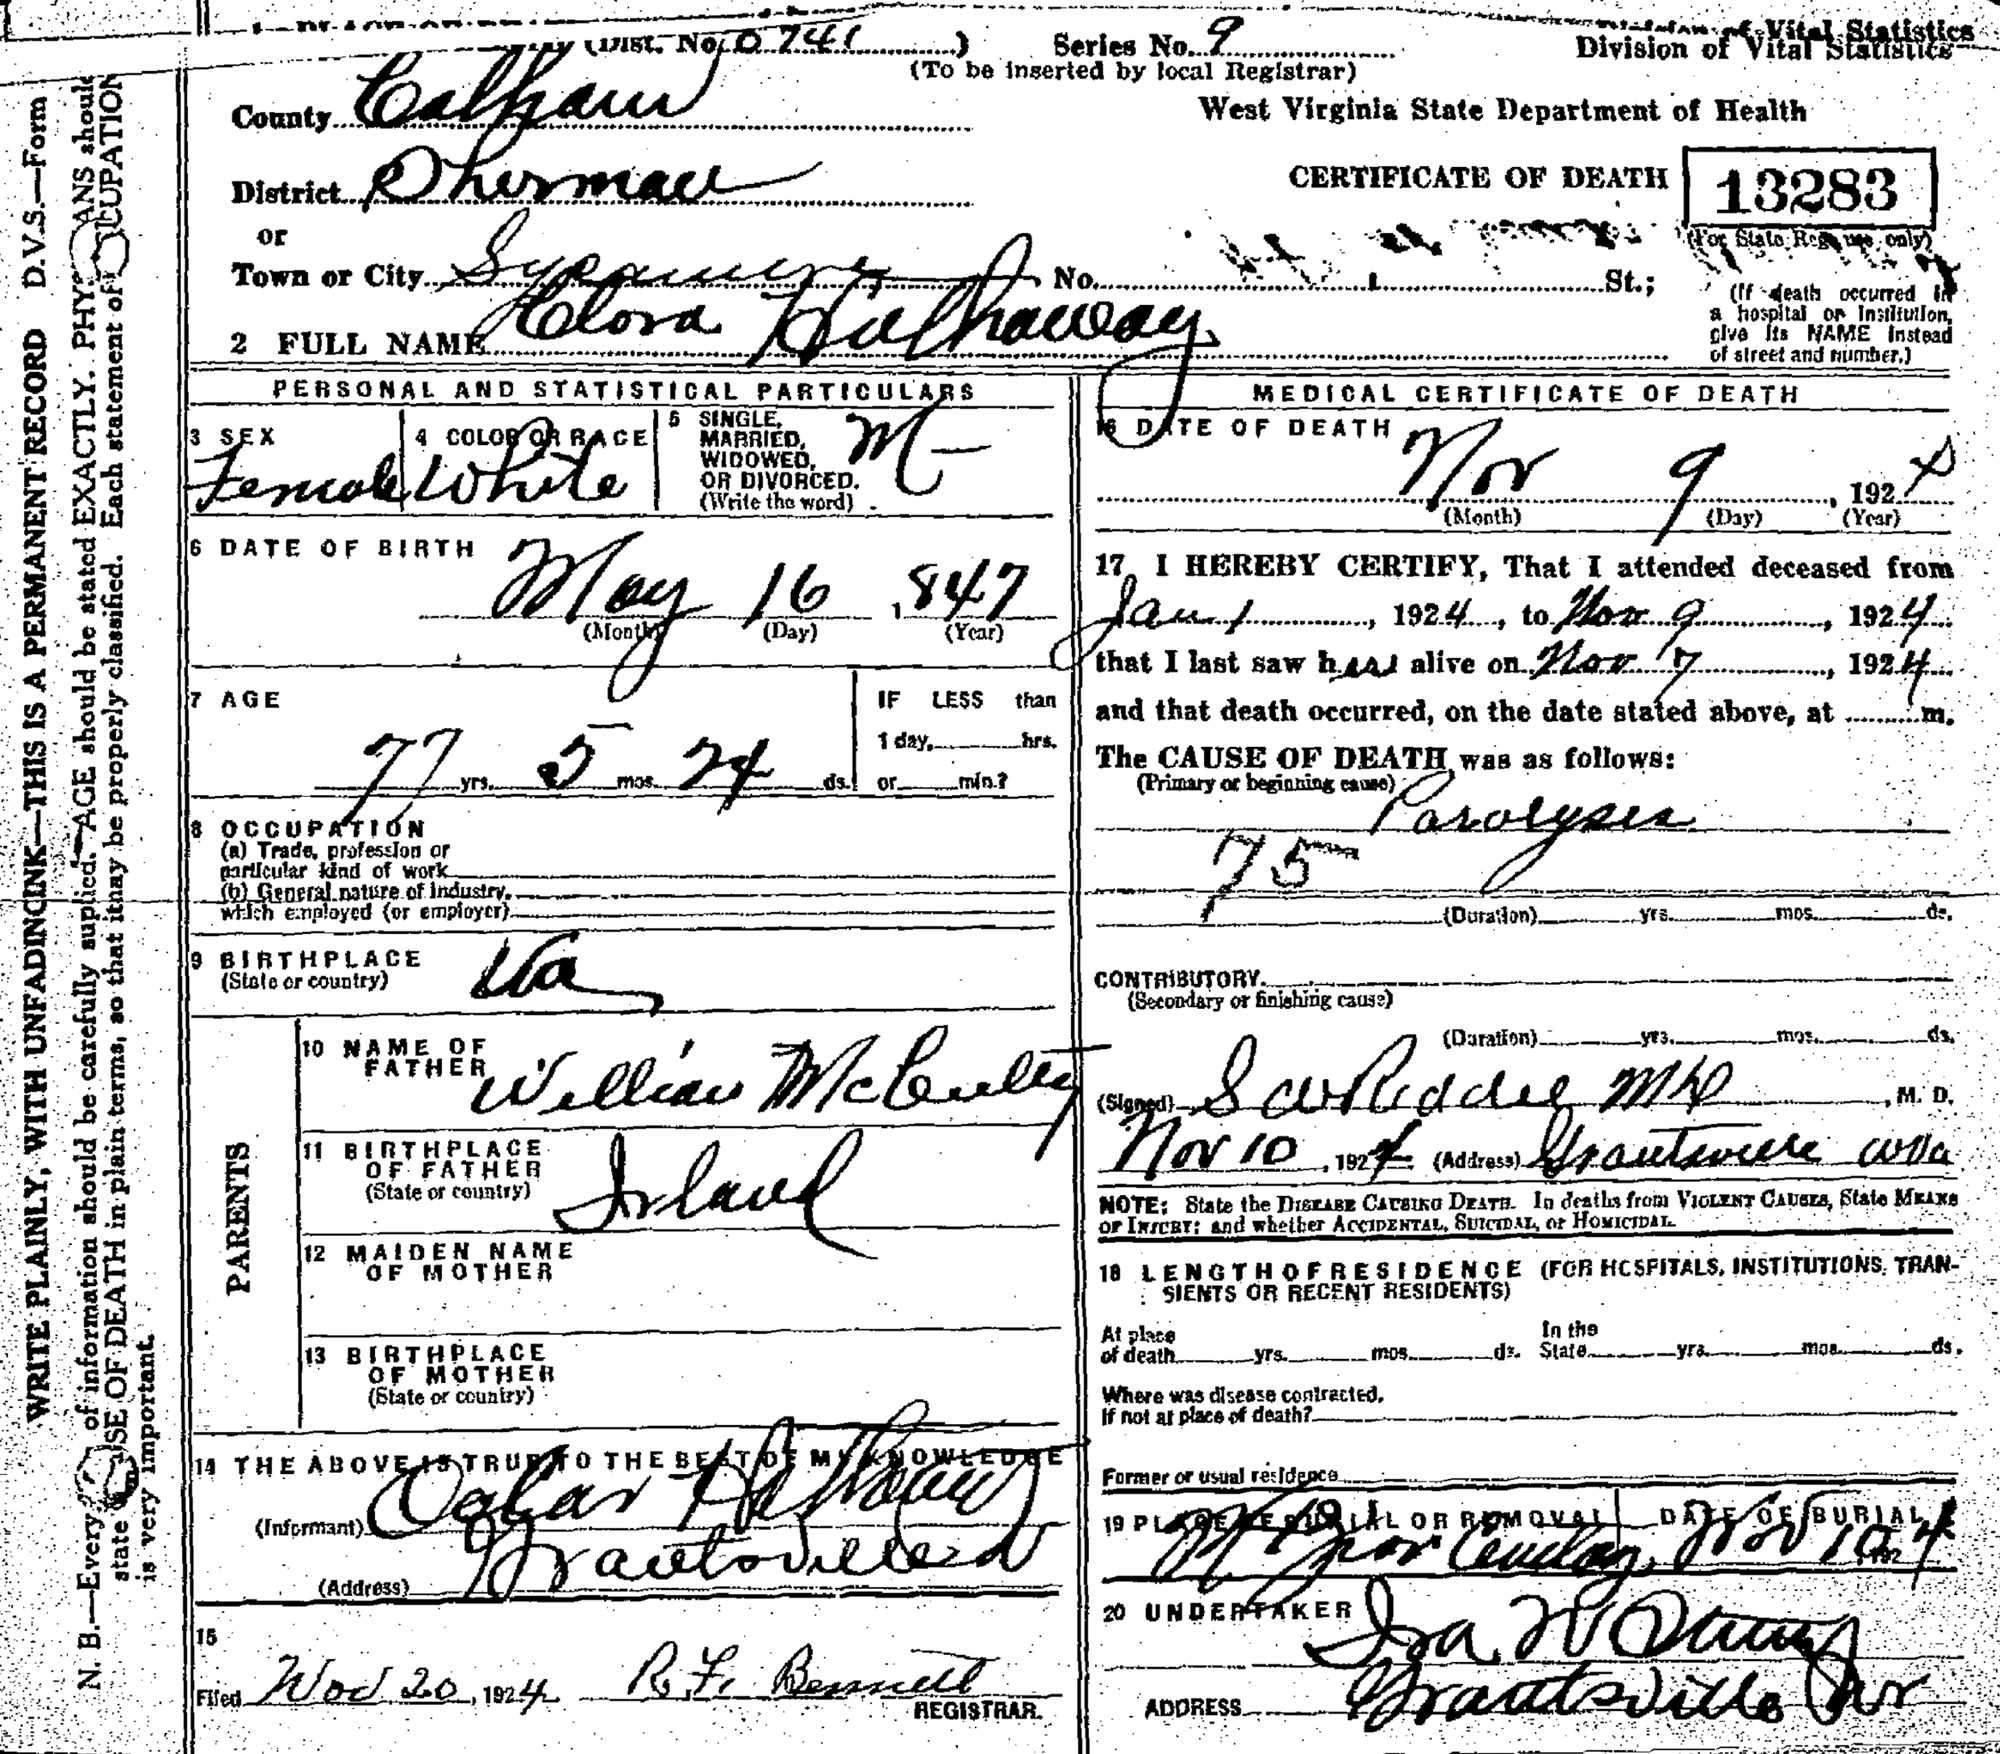 (Dist. No. 0741) Series No. 9
(To be inserted by local Registrar)
Division of Vital Statistics
Division of Vital Statistics
County Calhoun
West Virginia State Department of Health
District Sherman
CERTIFICATE OF DEATH 13283
(For State Reg. use only)
or
Town or City No. St.;
(If death occurred in
a hospital or institution,
give its NAME instead
of street and number.)
2 FULL NAME Clora Hathaway
PERSONAL AND STATISTICAL PARTICULARS
3 SEX
Female
4 COLOR OR RACE
White
5 SINGLE,
MARRIED,
WIDOWED,
OR DIVORCED.
(Write the word)
M
6 DATE OF BIRTH
May 16, 847
(Month) (Day) (Year)
7 AGE
77 yrs. 5 mos. 24 ds.
IF LESS than
1 day, hrs.
or min.?
8 OCCUPATION
(a) Trade, profession or
particular kind of work
(b) General nature of Industry,
which employed (or employer)
9 BIRTHPLACE
(State or country)
Va
PARENTS
10 NAME OF
FATHER William McCulty
11 BIRTHPLACE
OF FATHER
(State or country)
Irland
12 MAIDEN NAME
OF MOTHER
13 BIRTHPLACE
OF MOTHER
(State or country)
14 THE ABOVE IS TRUE TO THE BEST OF MY KNOWLEDGE
(Informant) Oskar Hathaway
(Address) Grantsville
15
Filed Nov 20, 1924 R. F. Bennett
REGISTRAR.
MEDICAL CERTIFICATE OF DEATH
16 DATE OF DEATH
Nov 9, 1924
(Month) (Day) (Year)
17 I HEREBY CERTIFY, That I attended deceased from
Jan 1, 1924, to Nov 9, 1924
that I last saw her alive on Nov 7, 1924
and that death occurred, on the date stated above, at m.
The CAUSE OF DEATH was as follows:
(Primary or beginning cause)
Paralysis
75
(Duration) yrs. mos. ds.
CONTRIBUTORY.
(Secondary or finishing cause)
(Duration) yrs. mos. ds.
(Signed) M.D., M. D.
Nov 10, 1924 (Address) Grantsville WVa
NOTE: State the DISEASE CAUSING DEATH. In deaths from VIOLENT CAUSES, State MEANS
OF INJURY; and whether ACCIDENTAL, SUICIDAL, or HOMICIDAL.
18 LENGTH OF RESIDENCE (FOR HOSPITALS, INSTITUTIONS, TRAN-
SIENTS OR RECENT RESIDENTS)
At place
of death yrs. mos. ds.
In the
State yrs. mos. ds.
Where was disease contracted,
If not at place of death?
Former or usual residence
19 PLACE OF BURIAL OR REMOVAL
DATE OF BURIAL
Nov 10, 1924
20 UNDERTAKER Ira
ADDRESS Grantsville
WRITE PLAINLY, WITH UNFADING INK—THIS IS A PERMANENT RECORD D.V.S.—Form
N. B.—Every of information should be carefully suplied. AGE should be stated EXACTLY. PHYSICIANS should
state CAUSE OF DEATH in plain terms, so that it may be properly classified. Each statement of OCCUPATION
is very important.